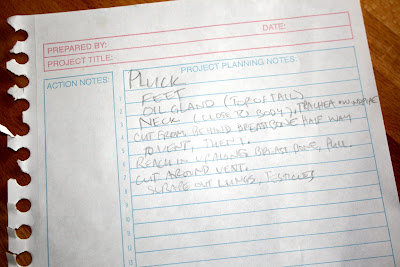 PREPARED BY:
DATE:
PROJECT TITLE:
ACTION NOTES:
PROJECT PLANNING NOTES:
PLUCK
1 FEET
2 OIL GLAND (TOP OF TAIL)
3 NECK (CLOSE TO BODY), TRACHEA
4 CUT FROM BEHIND BREASTBONE HALF WAY
5 TO VENT, THEN
6 REACH IN UP ALONG BREAST BONE, PULL.
7 CUT AROUND VENT.
8 SCRAPE OUT LUNGS, TESTICLES
9
10
11
12